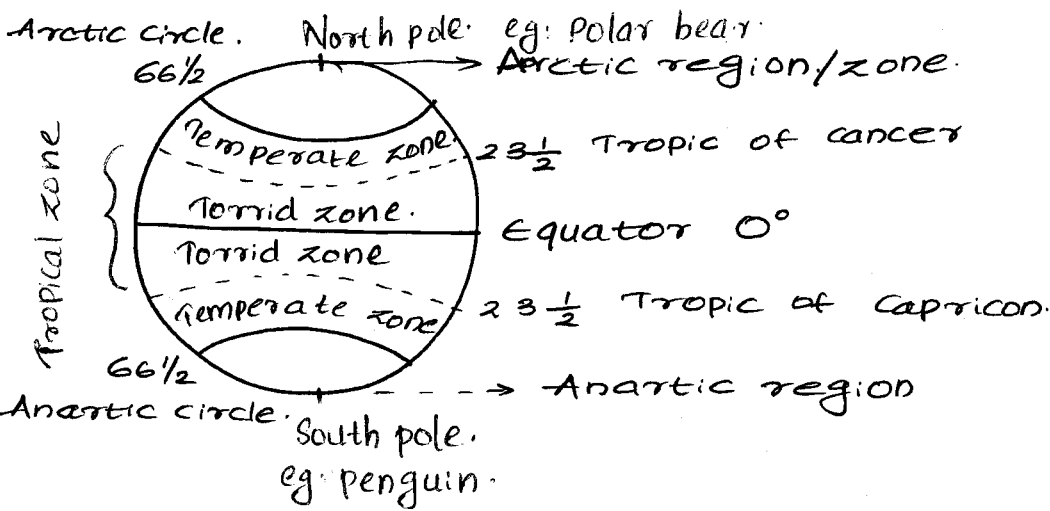 Arctic circle. North pole. eg: Polar bear.
66½ Arctic region/zone.
Temperate zone. 23½ Tropic of cancer
Tropical zone
Torrid zone.
Equator 0°
Torrid zone
Temperate zone 23½ Tropic of Capricon.
66½
Anartic region
Anartic circle.
South pole.
eg. penguin.